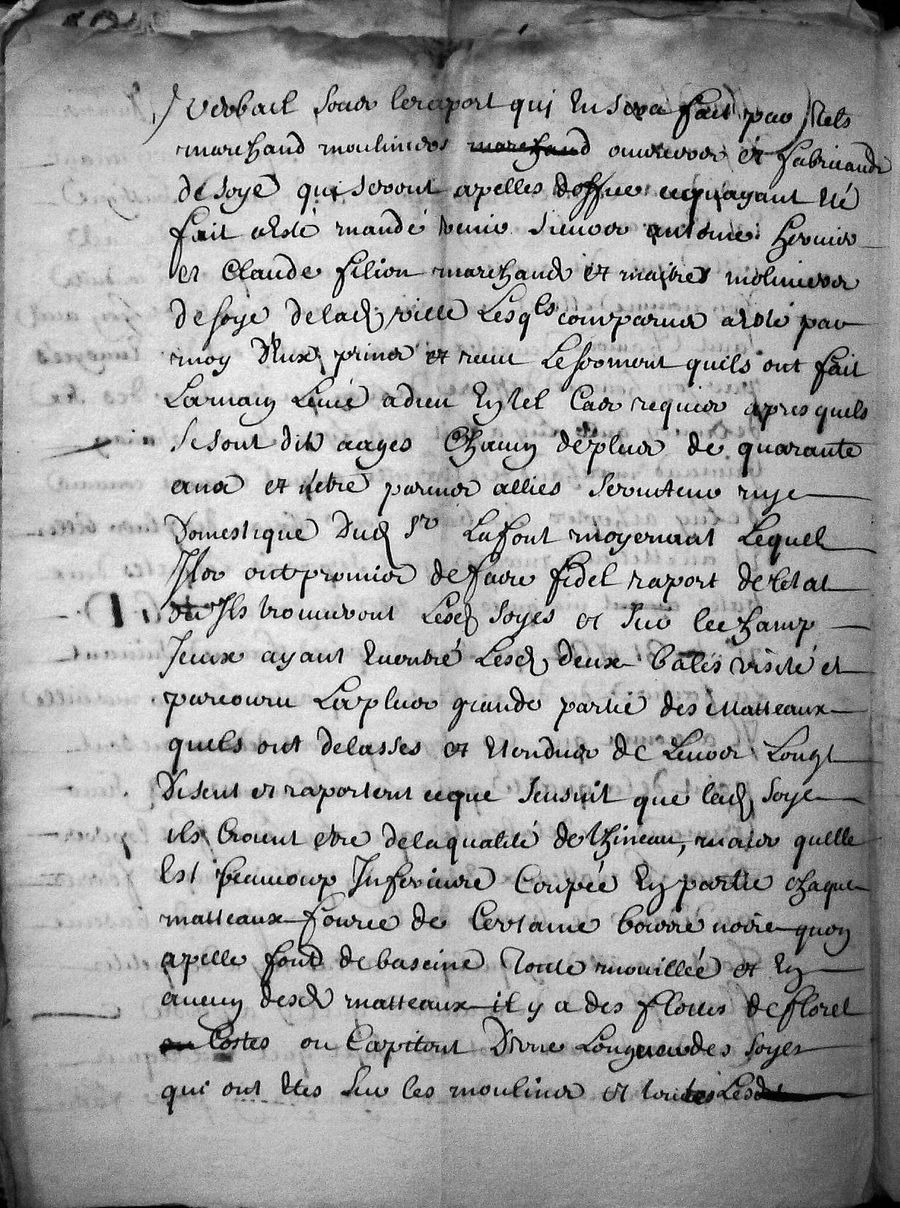 verbail sur le raport qui en sera fait par tels
marchand mouliniers marchand ouvriers et fabricands
de soye qui seront apelles doffice ce quayant eté
fait a esté mandé venir sieurs antoine
et Claude filion marchands et maitres moliniers
de soye de lad ville Lesqls comparus a esté par
moy Deux, prins et receu Le serment quils ont fait
La main Levée a dieu En tel Cas requis apres quels
se sont dits aages Chacun de plus de quarante
ans et netre parans allies serviteurs ny
Domestique Dud Sr Lafont moyenant Lequel
Ils ont promis de faire fidel raport de letat
ou Ils trouveront Lesd soyes et sur le champ
Iceux ayant Lesd deux bales visité et
parcouru La plus grande partie des Matteaux
quels ont delasses et Etendus de Leurs Longt
Disent et raportent ce que sensuit que lad soye
ils croient etre de la qualité de , mais quelle
Est beaucoup Inferieure Coupée En partie chaque
matteaux fouree de Certaine bourre noire quon
apelle fond de bascine toute mouillée et En
aucun desd matteaux il y a des flottes de floret
ou Costes ou Capitont Dune Longueur des soyes
qui ont Etes sur les moulins et toutes Lesd